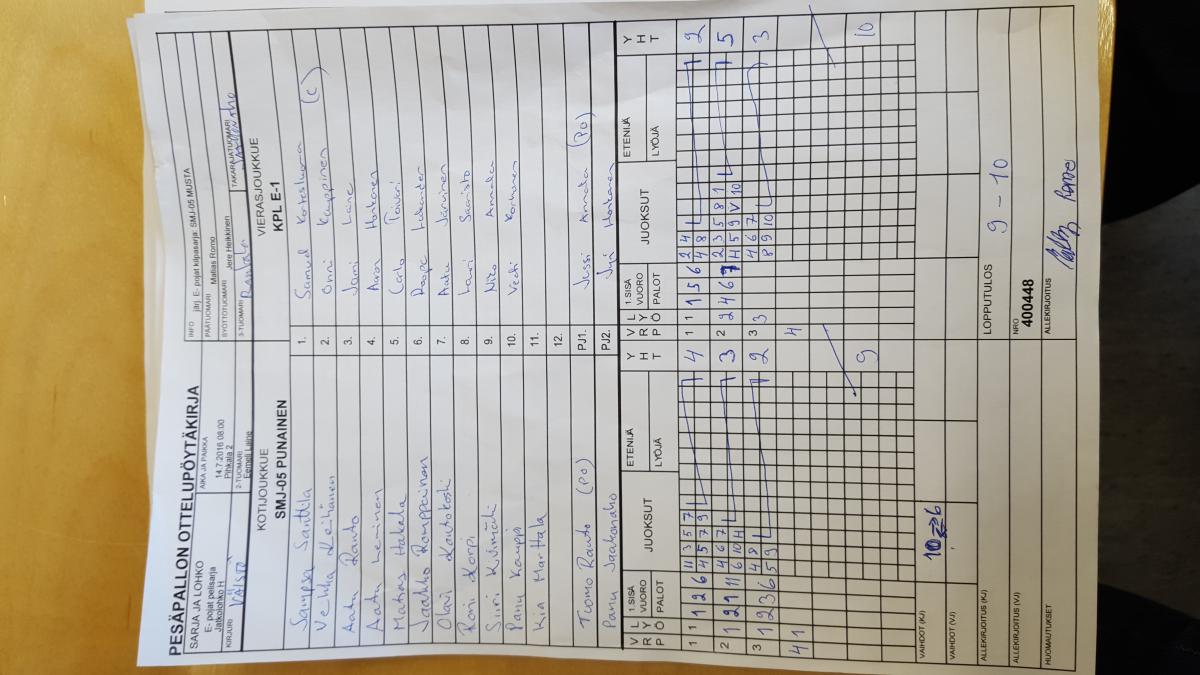 PESÄPALLON OTTELUPÖYTÄKIRJA
SARJA JA LOHKO
E- pojat pelisarja
Jatkolohko H
AIKA JA PAIKKA
14.7.2016 08.00
Pihkala 2
INFO järj. E- pojat kilpasarja: SMJ-05 MUSTA
PÄÄTUOMARI Matias Romo
SYÖTTÖTUOMARI Jere Heikkinen
KIRJURI
2-TUOMARI
Eemeli Laine
3-TUOMARI Rantala
TAKARAJATUOMARI
KOTIJOUKKUE
SMJ-05 PUNAINEN
VIERASJOUKKUE
KPL E-1
Sampsa Santtila 1. Samuel (C)
Veikka Keihänen 2. Onni Kauppinen
Aatu Rauto 3. Jami Laine
Aatu Leminen 4. Aaro Harkonen
Matias Hakala 5. Carlo Toivari
Jaakko Romppainen 6. Roope
Olavi Rautakoski 7. Aatu Järvinen
Roni Korpi 8. Lauri Saaristo
Siiri 9. Niko Annala
Panu Kauppi 10. Veeti Korhonen
Kia Marttala 11.
12.
Tuomo Rauto (PO) PJ1. Jussi Annala (PO)
Panu Jaakonaho PJ2. Jyri Harkonen
V R P L Y Ö 1.SISÄ VUORO PALOT JUOKSUT ETENIJÄ LYÖJÄ Y H T
V R P L Y Ö 1.SISÄ VUORO PALOT JUOKSUT ETENIJÄ LYÖJÄ Y H T
1 1 1 2 6 11 3 5 7 4
4 5 7 9
1 1 1 5 6 2 4 2
4 8
2 1 2 9 11 4 6 7 3
6 10 H
2 2 4 6 7 2 3 5 8 1 5
H 5 9 V 10
3 1 2 3 6 4 8 2
5 9
3 3 4 6 7 3
8 9 10
4 1
4
9
10
VAIHDOT (KJ)
VAIHDOT (VJ)
ALLEKIRJOITUS (KJ)
LOPPUTULOS 9 - 10
ALLEKIRJOITUS (VJ)
NRO
400448
HUOMAUTUKSET
ALLEKIRJOITUS